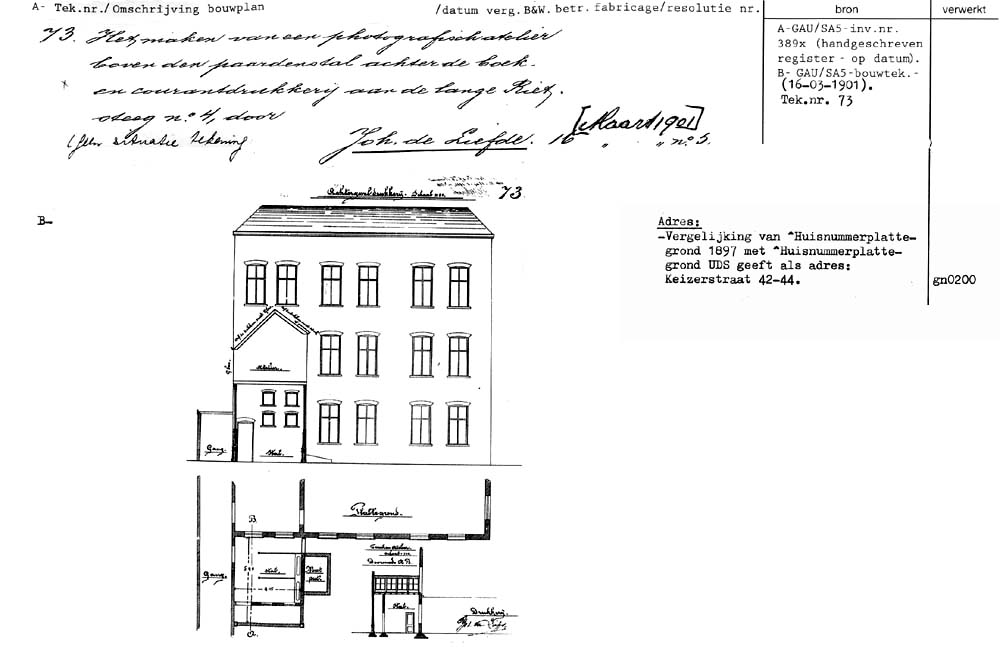 A- Tek.nr./Omschrijving bouwplan /datum verg.B&W. betr. fabricage/resolutie nr. bron verwerkt
73. Het maken van een photografisch atelier
boven den paardenstal achter de boek-
en courantdrukkerij aan de lange Riet-
steeg n:o 4, door
(geen situatie tekening Joh. de Liefde. 16 [Maart 1901] " " n:o 5.
A-GAU/SA5-inv.nr.
389x (handgeschreven
register - op datum).
B- GAU/SA5-bouwtek.-
(16-03-1901).
Tek.nr. 73
B-
Achtergevel drukkerij. Schaal 73
Adres:
-Vergelijking van ^Huisnummerplatte-
grond 1897 met ^Huisnummerplatte-
grond UDS geeft als adres:
Keizerstraat 42-44.
gn0200
Atelier.
Gang.
Stal.
Plattegrond.
B.
Doorsnede A B.
Gang.
Stal.
Stal.
Drukkerij.